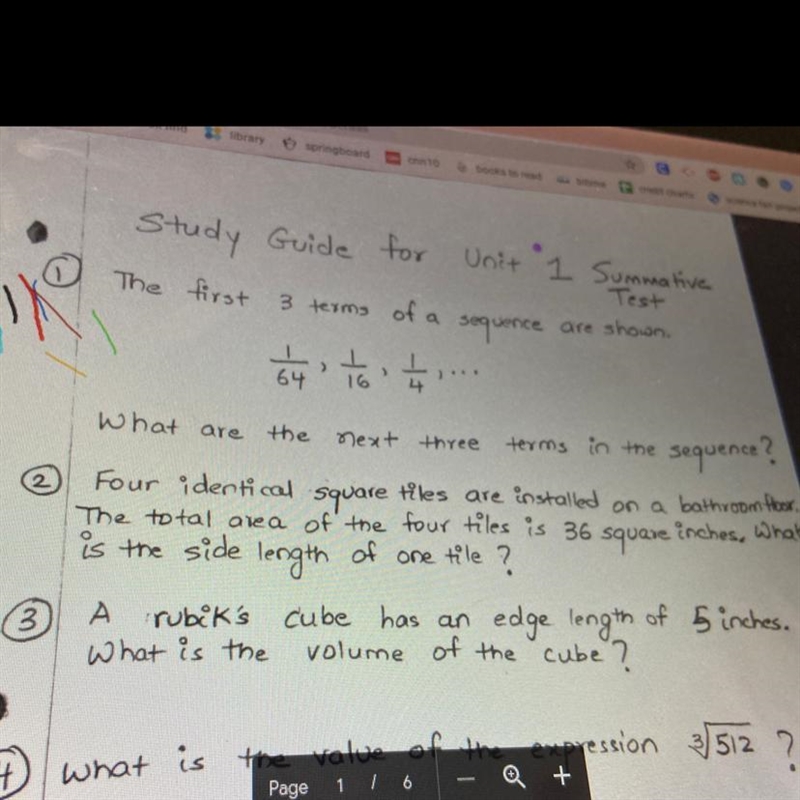 library springboard cnn10 books to read
Study Guide for Unit 1 Summative
Test
① The first 3 terms of a sequence are shown.
1/64, 1/16, 1/4, ...
What are the next three terms in the sequence?
② Four identical square tiles are installed on a bathroom floor.
The total area of the four tiles is 36 square inches. What
is the side length of one tile?
③ A rubik's cube has an edge length of 5 inches.
What is the volume of the cube?
What is the value of the expression ∛512 ?
Page 1 / 6 − +